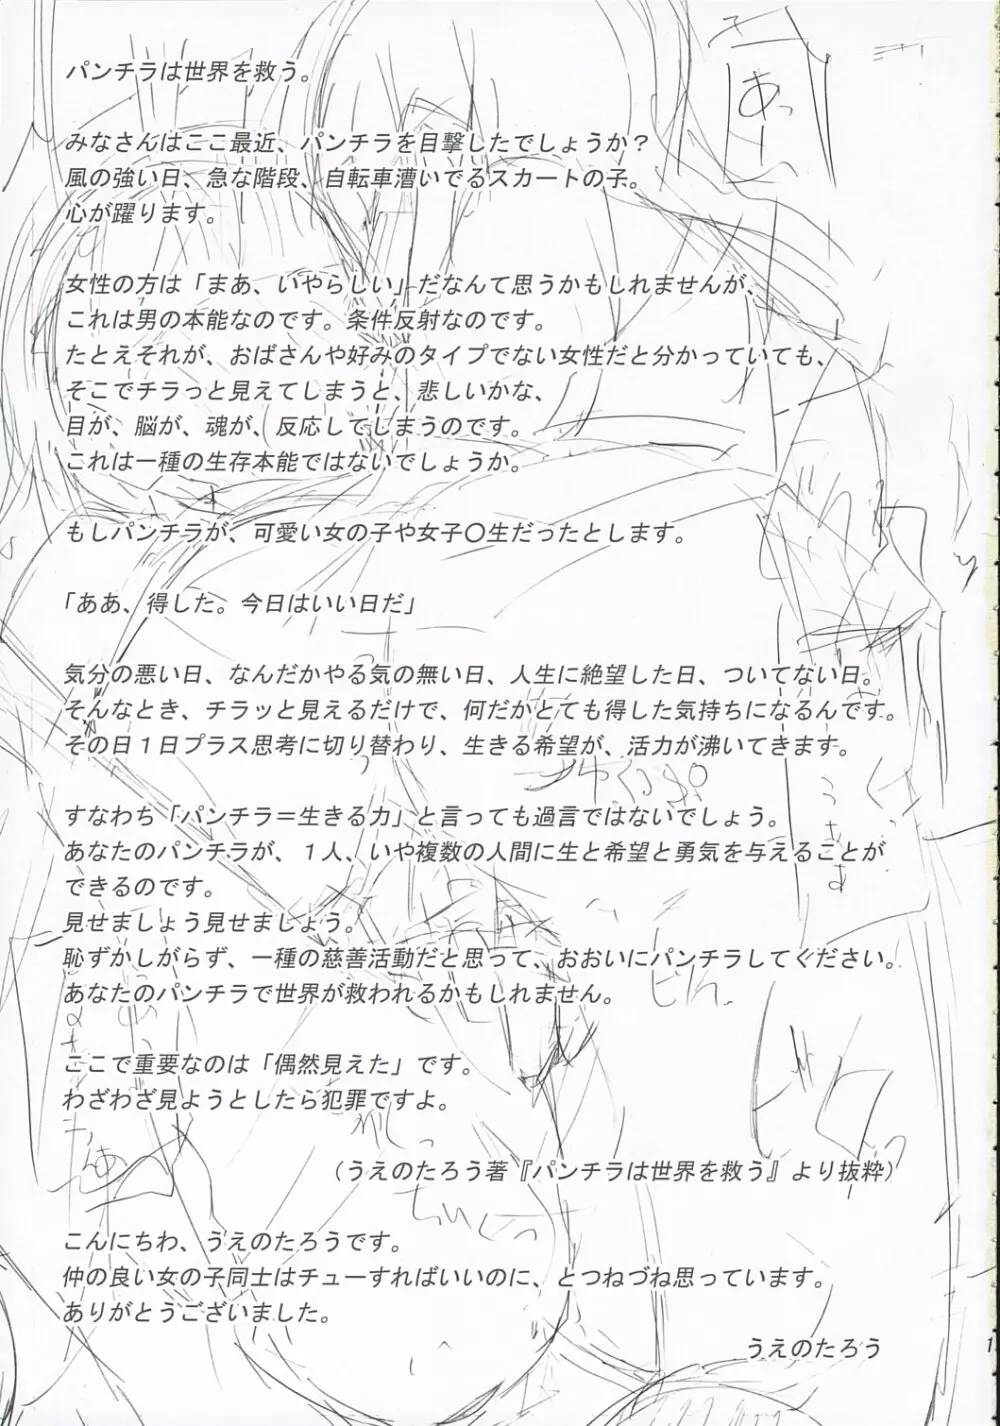 パンチラは世界を救う。
みなさんはここ最近、パンチラを目撃したでしょうか？
風の強い日、急な階段、自転車漕いでるスカートの子。
心が躍ります。
女性の方は「まあ、いやらしい」だなんて思うかもしれませんが、
これは男の本能なのです。条件反射なのです。
たとえそれが、おばさんや好みのタイプでない女性だと分かっていても、
そこでチラっと見えてしまうと、悲しいかな、
目が、脳が、魂が、反応してしまうのです。
これは一種の生存本能ではないでしょうか。
もしパンチラが、可愛い女の子や女子〇生だったとします。
「ああ、得した。今日はいい日だ」
気分の悪い日、なんだかやる気の無い日、人生に絶望した日、ついてない日。
そんなとき、チラッと見えるだけで、何だかとても得した気持ちになるんです。
その日１日プラス思考に切り替わり、生きる希望が、活力が沸いてきます。
すなわち「パンチラ＝生きる力」と言っても過言ではないでしょう。
あなたのパンチラが、１人、いや複数の人間に生と希望と勇気を与えることが
できるのです。
見せましょう見せましょう。
恥ずかしがらず、一種の慈善活動だと思って、おおいにパンチラしてください。
あなたのパンチラで世界が救われるかもしれません。
ここで重要なのは「偶然見えた」です。
わざわざ見ようとしたら犯罪ですよ。
（うえのたろう著『パンチラは世界を救う』より抜粋）
こんにちわ、うえのたろうです。
仲の良い女の子同士はチューすればいいのに、とつねづね思っています。
ありがとうございました。
うえのたろう
あっー